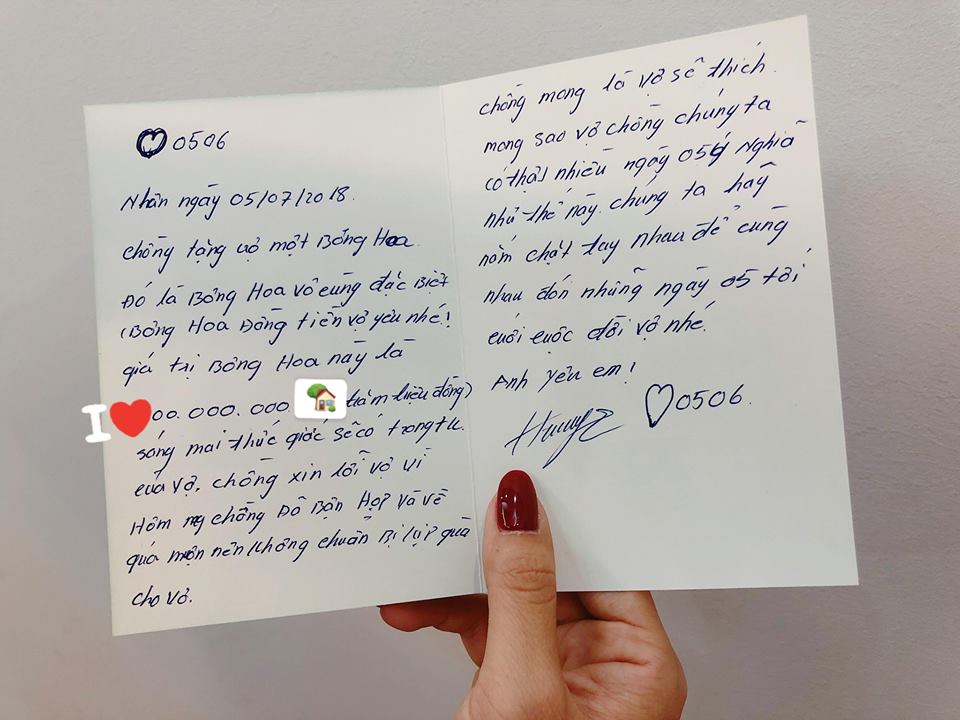 ♡ 0506
Nhân ngày 05/07/2018.
chồng tặng vợ một Bông Hoa.
Đó là Bông Hoa vô cùng đặc Biệt
(Bông Hoa Đồng tiền vợ yêu nhé!
giá trị Bông Hoa này là
I ❤️ 00.000.000 trăm triệu đồng)
sáng mai thức giấc sẽ có trong tk
của vợ, chồng xin lỗi vợ vì
Hôm nay chồng Đã Bận Họp và về
quá muộn nên không chuẩn Bị kịp quà
cho vợ.
chồng mong là vợ sẽ thích.
mong sao vợ chồng chúng ta
có thật nhiều ngày 05 Nghĩa
như thế này. chúng ta hãy
nắm chặt tay Nhau để cùng
nhau đón những ngày 05 tới
cuối cuộc đời vợ nhé.
Anh yêu em!
♡ 0506.